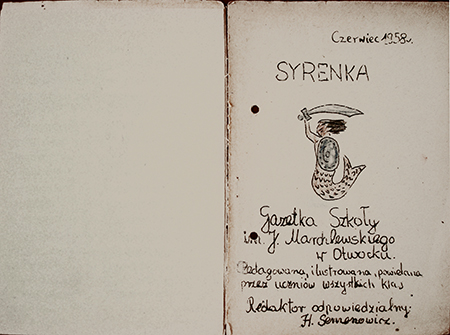 Czerwiec 1958r.
SYRENKA
Gazetka Szkoły
im. J. Marchlewskiego
w Otwocku.
Redagowana, ilustrowana, powielana
przez uczniów wszystkich klas
Redaktor odpowiedzialny:
H. Semenowicz.